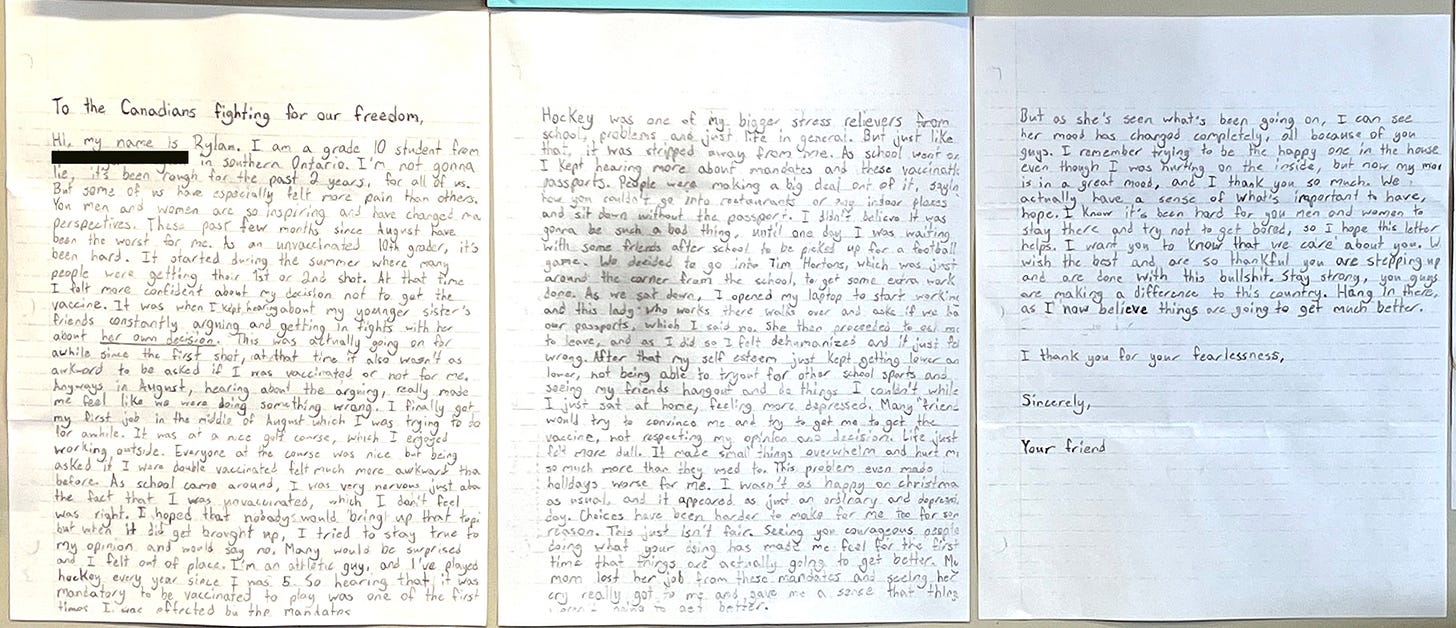 To the Canadians fighting for our freedom,
Hi, my name is Rylan. I am a grade 10 student from
in southern Ontario. I'm not gonna
lie, it's been rough for the past 2 years, for all of us.
But some of us have especially felt more pain than others.
You men and women are so inspiring and have changed
perspectives. These past few months since August have
been the worst for me. As an unvaccinated 10th grader, it's
been hard. It started during the summer where many
people were getting their 1st or 2nd shot. At that time
I felt more confident about my decision not to get the
vaccine. It was when I kept hearing about my younger sister's
friends constantly arguing and getting in fights with her
about her own decision. This was actually going on for
awhile since the first shot, at that time it also wasn't as
awkward to be asked if I was vaccinated or not for me.
Anyways in August, hearing about the arguing, really made
me feel like we were doing something wrong. I finally got
my first job in the middle of August which I was trying to do
for awhile. It was at a nice golf course, which I enjoyed
working outside. Everyone at the course was nice but being
asked if I were double vaccinated felt much more awkward tha
before. As school came around, I was very nervous just abo
the fact that I was unvaccinated, which I don't feel
was right. I hoped that nobody would bring up that topi
but when it did get brought up, I tried to stay true to
my opinion and would say no. Many would be surprised
and I felt out of place. I'm an athletic guy, and I've played
hockey every year since I was 5. So hearing that it was
mandatory to be vaccinated to play was one of the first
times I was affected by the mandates
Hockey was one of my bigger stress relievers from
school, problems and just life in general. But just like
that, it was stripped away from me. As school went on
I kept hearing more about mandates and these vaccinati
passports. People were making a big deal out of it, sayin
how you couldn't go into restaurants or any indoor places
and sit down without the passport. I didn't believe it was
gonna be such a bad thing, until one day I was waiting
with some friends after school to be picked up for a football
game. We decided to go into Tim Hortons, which was just
around the corner from the school, to get some extra work
done. As we sat down, I opened my laptop to start working
and this lady who works there walks over and asks if we ha
our passports, which I said no. She then proceeded to ask me
to leave, and as I did so I felt dehumanized and it just fel
wrong. After that my self esteem just kept getting lower an
lower, not being able to tryout for other school sports and
seeing my friends hangout and do things I couldn't while
I just sat at home, feeling more depressed. Many "friend
would try to convince me and try to get me to get the
vaccine, not respecting my opinion and decision. Life just
felt more dull. It made small things overwhelm and hurt m
so much more than they used to. This problem even made
holidays worse for me. I wasn't as happy on christma
as usual, and it appeared as just an ordinary and depressi
day. Choices have been harder to make for me too for som
reason. This just isn't fair. Seeing you courageous people
doing what your doing has made me feel for the first
time that things are actually going to get better. My
mom lost her job from these mandates and seeing her
cry really got to me and gave me a sense that thing
weren't going to get better.
But as she's seen what's been going on, I can see
her mood has changed completely, all because of you
guys. I remember trying to be the happy one in the house
even though I was hurting on the inside, but now my mo
is in a great mood, and I thank you so much. We
actually have a sense of what's important to have,
hope. I know it's been hard for you men and women to
stay there and try not to get bored, so I hope this letter
helps. I want you to know that we care about you. W
wish the best and are so thankful you are stepping up
and are done with this bullshit. Stay strong, you guys
are making a difference to this country. Hang in there,
as I now believe things are going to get much better.
I thank you for your fearlessness,
Sincerely,
Your friend